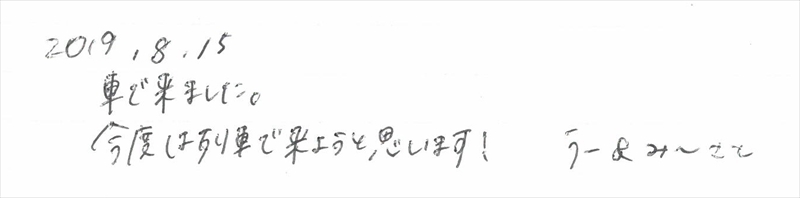 2019.8.15
車で来ました。
今度は列車で来ようと思います! うー&み〜こと